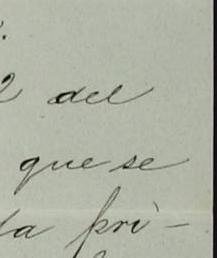 2 del
que se
la pri-